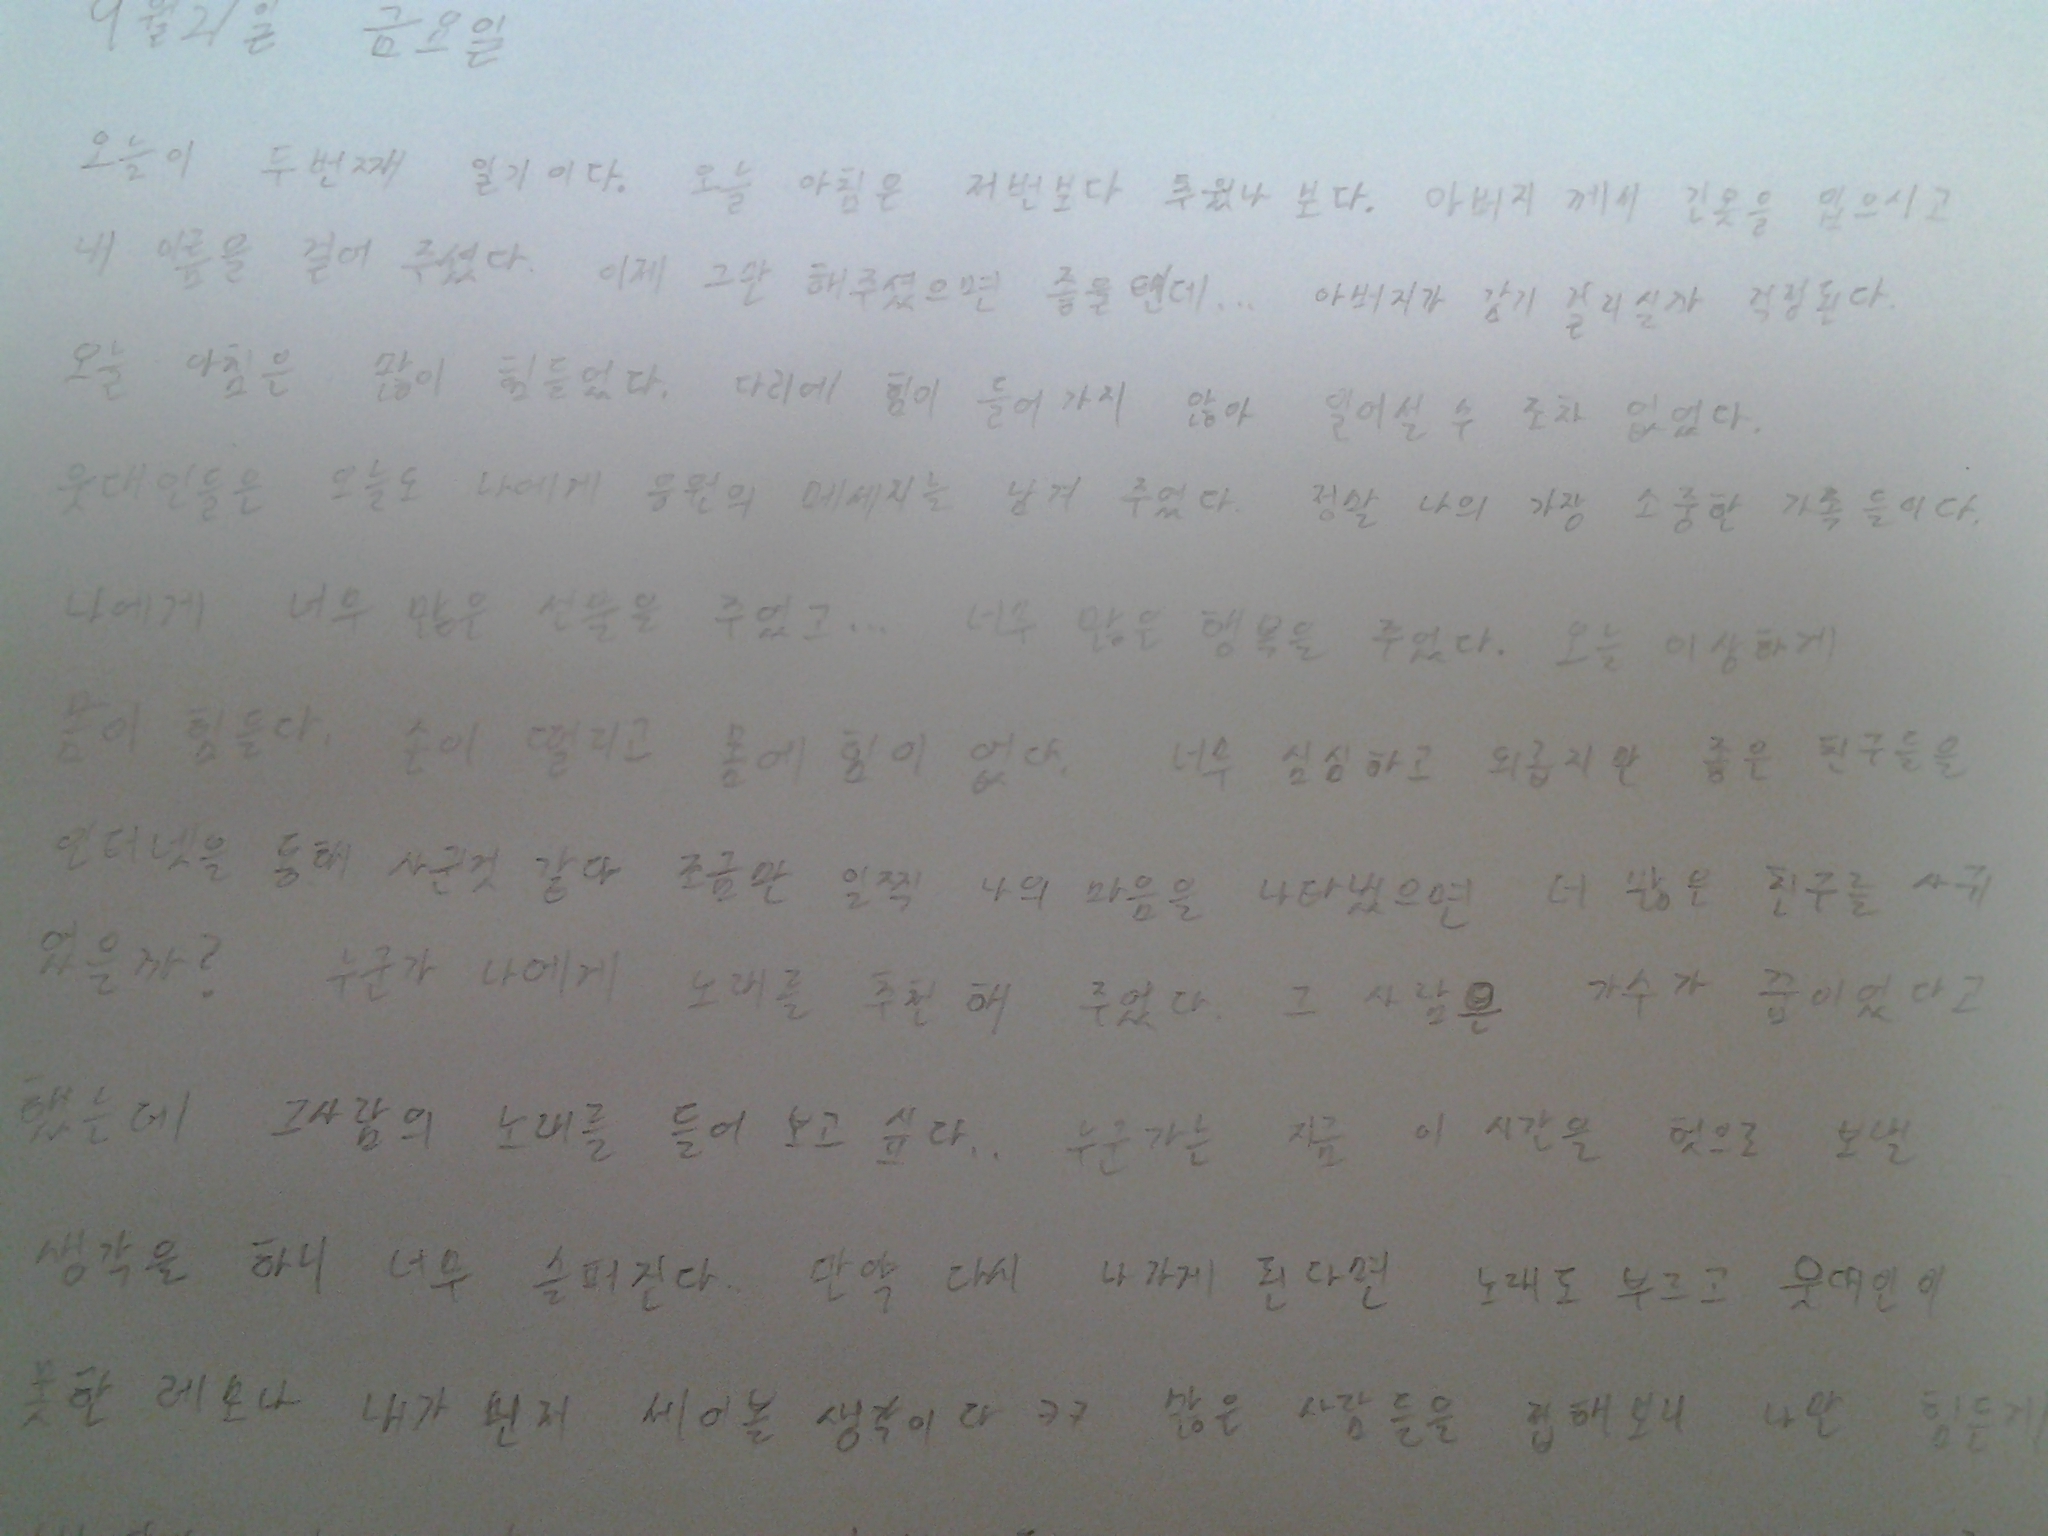 9월21일 금요일
오늘이 두번째 일기이다. 오늘 아침은 저번보다 추웠나 보다. 아버지 께서 긴옷을 입으시고
내 이름을 걸어 주셨다. 이제 그만 해주셨으면 좋을텐데... 아버지가 감기 걸리실까 걱정된다.
오늘 아침은 많이 힘들었다. 다리에 힘이 들어가지 않아 일어설 수 조차 없었다.
웃대인들은 오늘도 나에게 응원의 메세지는 남겨 주었다. 정말 나의 가장 소중한 가족들이다.
나에게 너무 많은 선물을 주었고... 너무 많은 행복을 주었다. 오늘 이상하게
몸이 힘들다. 손이 떨리고 몸에 힘이 없다. 너무 심심하고 외롭지만 좋은 친구들을
인터넷을 통해 사귄것 같다 조금만 일찍 나의 마음을 나타냈으면 더 많은 친구를 사귀
었을까? 누군가 나에게 노래를 추천해 주었다. 그 사람은 가수가 꿈이었다고
했는데 그사람의 노래를 들어 보고 싶다.. 누군가는 지금 이 시간을 헛으로 보낼
생각을 하니 너무 슬퍼진다. 만약 다시 나가게 된다면 노래도 부르고 웃대인이
못한 레모나 내가 먼저 세어볼 생각이다 ㅋㅋ 많은 사람들을 접해보니 나만 힘든게